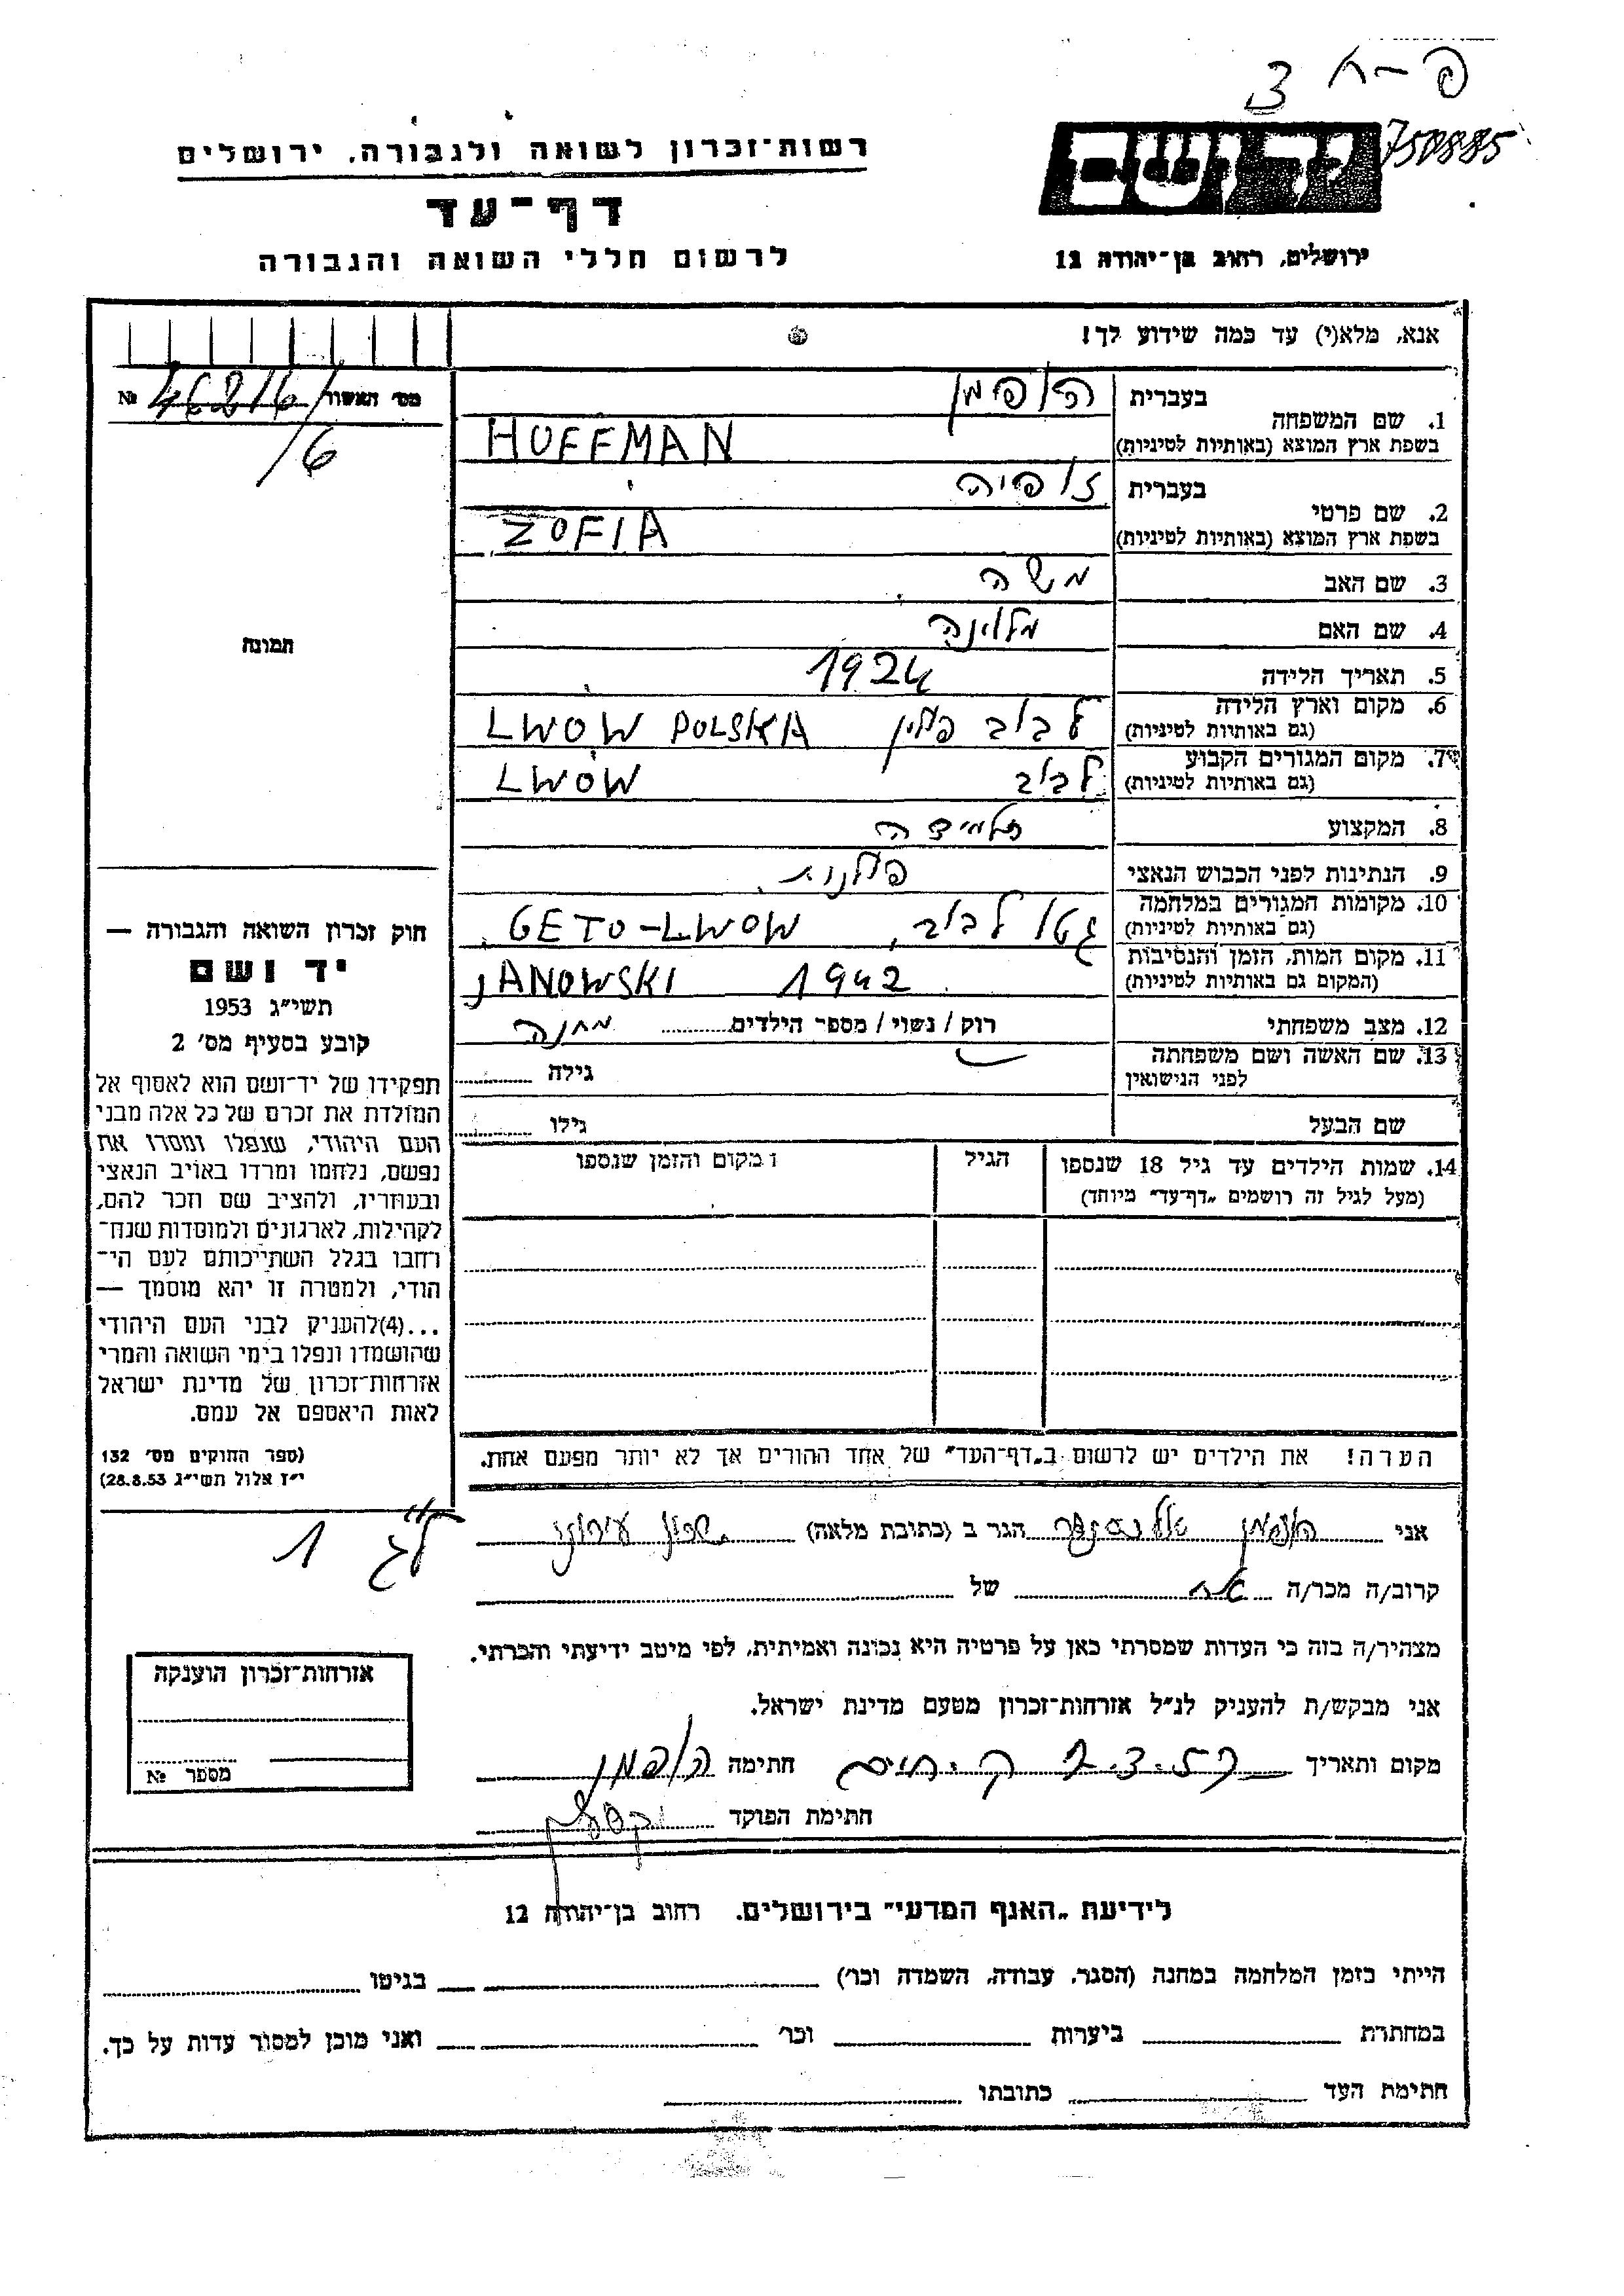 פ-ח 3
750885
יד ושם
ירושלים, רחוב בן־יהודה 12
רשות־זכרון לשואה ולגבורה, ירושלים
דף־עד
לרשום חללי השואה והגבורה
אנא, מלא(י) עד כמה שידוע לך!
מס' האשור 46216/ №
/6
1. שם המשפחה בעברית הופימן
בשפת ארץ המוצא (באותיות לטיניות) HUFFMAN
2. שם פרטי בעברית זופיה
בשפת ארץ המוצא (באותיות לטיניות) ZOFIA
3. שם האב משה
4. שם האם מלוינה
5. תאריך הלידה 1924
6. מקום וארץ הלידה לבוב פולין LWOW POLSKA
(גם באותיות לטיניות)
7. מקום המגורים הקבוע לבוב LWÓW
(גם באותיות לטיניות)
8. המקצוע תלמידה
9. הנתינות לפני הכבוש הנאצי פולנית
10. מקומות המגורים במלחמה גטו לבוב, GETO-LWOW
(גם באותיות לטיניות)
11. מקום המות, הזמן והנסיבות JANOWSKI 1942
(המקום גם באותיות לטיניות) מחנה
12. מצב משפחתי רוק / נשוי / מספר הילדים
13. שם האשה ושם משפחתה גילה
לפני הנישואין
שם הבעל גילו
14. שמות הילדים עד גיל 18 שנספו הגיל מקום והזמן שנספו
(מעל לגיל זה רושמים „דף־עד” מיוחד)
הערה! את הילדים יש לרשום ב„דף־העד” של אחד ההורים אך לא יותר מפעם אחת.
תמונה
חוק זכרון השואה והגבורה —
יד ושם
תשי"ג 1953
קובע בסעיף מס' 2
תפקידו של יד־ושם הוא לאסוף אל
המולדת את זכרם של כל אלה מבני
העם היהודי, שנפלו ומסרו את
נפשם, נלחמו ומרדו באויב הנאצי
ובעוזריו, ולהציב שם וזכר להם,
לקהילות, לארגונים ולמוסדות שנח־
רחבו בגלל השתייכותם לעם הי־
הודי, ולמטרה זו יהא מוסמך —
...(4)להעניק לבני העם היהודי
שהושמדו ונפלו בימי השואה והמרי
אזרחות־זכרון של מדינת ישראל
לאות היאספם אל עמם.
(ספר החוקים מס' 132
י"ז אלול תשי"ג 28.8.53)
1
אני הופמן אלכסנדר הגר ב (כתובת מלאה) שכון עירוני
קרוב/ה מכר/ה אח של
מצהיר/ה בזה כי העדות שמסרתי כאן על פרטיה היא נכונה ואמיתית, לפי מיטב ידיעתי והכרתי.
אני מבקש/ת להעניק לנ"ל אזרחות־זכרון מטעם מדינת ישראל.
מקום ותאריך ק. חיים חתימה הופמן
חתימת הפוקד
אזרחות־זכרון הוענקה
מספר №
לידיעת „האגף המדעי” בירושלים. רחוב בן־יהודה 12
הייתי בזמן המלחמה במחנה (הסגר, עבודה, השמדה וכו') בגיטו
במחתרת ביערות וכו' ואני מוכן למסור עדות על כך.
חתימת העד כתובתו